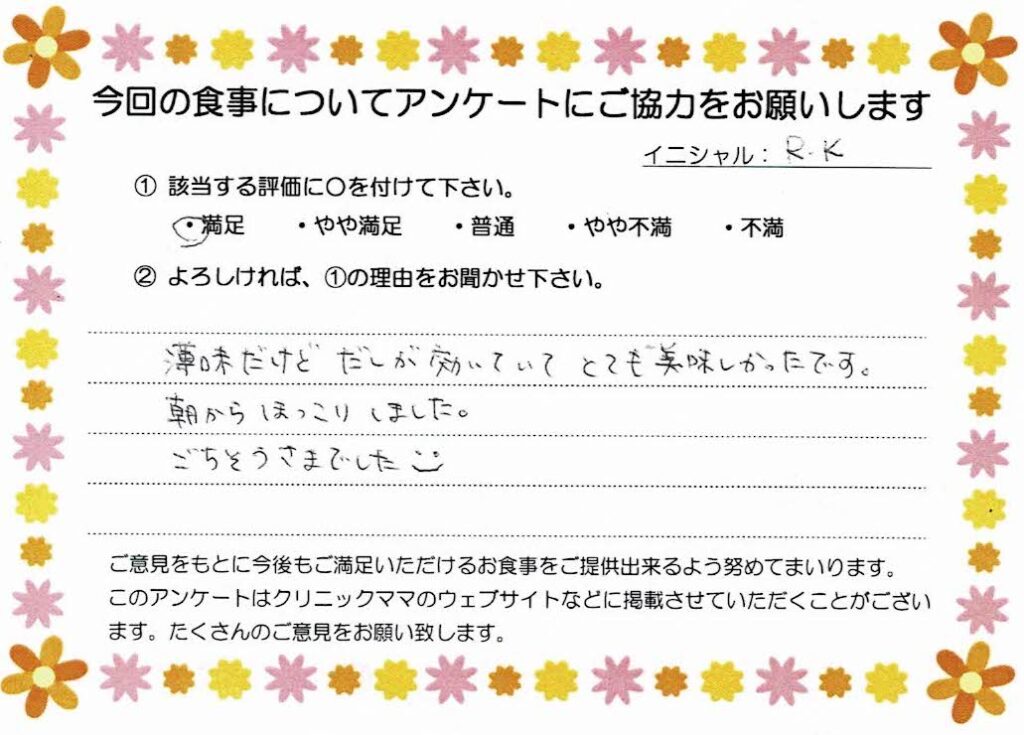 今回の食事についてアンケートにご協力をお願いします
イニシャル： R.K
① 該当する評価に〇を付けて下さい。
・満足 ・やや満足 ・普通 ・やや不満 ・不満
② よろしければ、①の理由をお聞かせ下さい。
薄味だけど だしが効いていて とても美味しかったです。
朝から ほっこり しました。
ごちそうさまでした
ご意見をもとに今後もご満足いただけるお食事をご提供出来るよう努めてまいります。
このアンケートはクリニックママのウェブサイトなどに掲載させていただくことがござい
ます。たくさんのご意見をお願い致します。